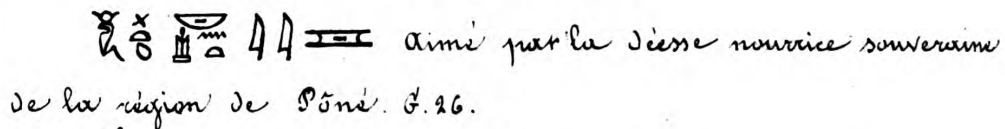 aimé par la Déesse nourrice souveraine
de la région de Pôné. G. 26.